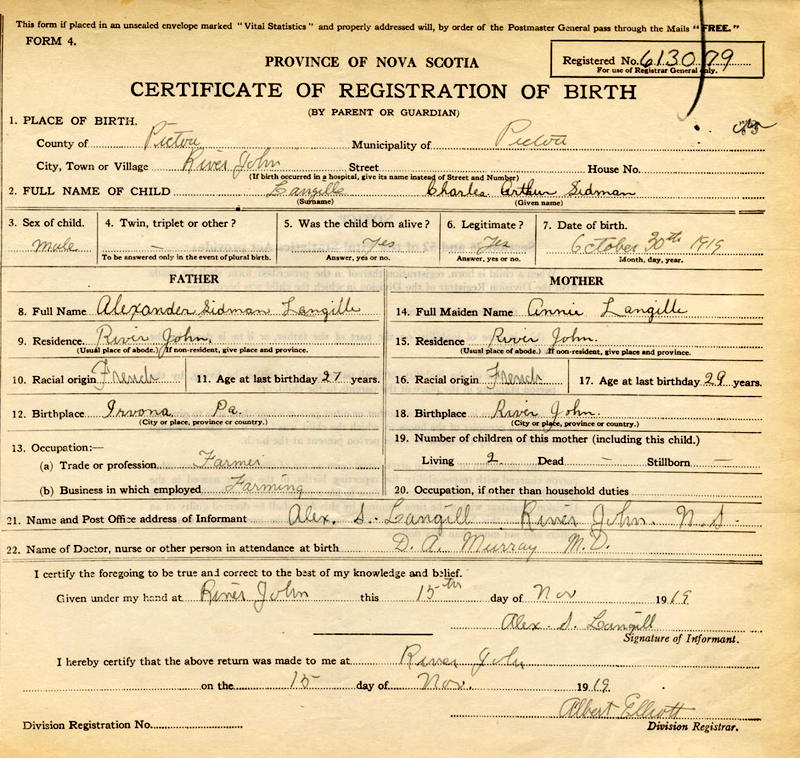 This form if placed in an unsealed envelope marked "Vital Statistics" and properly addressed will, by order of the Postmaster General pass through the Mails "FREE."
FORM 4.
PROVINCE OF NOVA SCOTIA
Registered No. 613079
For use of Registrar General only.
CERTIFICATE OF REGISTRATION OF BIRTH
(BY PARENT OR GUARDIAN)
1. PLACE OF BIRTH.
County of Pictou Municipality of Pictou
City, Town or Village River John Street House No.
(If birth occurred in a hospital, give its name instead of Street and Number)
2. FULL NAME OF CHILD Langille Charles Arthur Sidman
(Surname) (Given name)
3. Sex of child. 4. Twin, triplet or other? 5. Was the child born alive? 6. Legitimate? 7. Date of birth.
Male — Yes Yes October 30th 1919
To be answered only in the event of plural birth. Answer, yes or no. Answer, yes or no. Month, day, year.
FATHER MOTHER
8. Full Name Alexander Sidman Langille 14. Full Maiden Name Annie Langille
9. Residence River John. 15. Residence River John.
(Usual place of abode.) If non-resident, give place and province. (Usual place of abode.) If non-resident, give place and province.
10. Racial origin French 11. Age at last birthday 27 years. 16. Racial origin French 17. Age at last birthday 29 years.
12. Birthplace Irvona Pa. 18. Birthplace River John.
(City or place, province or country.) (City or place, province or country.)
13. Occupation:— 19. Number of children of this mother (including this child.)
(a) Trade or profession Farmer Living 2 Dead — Stillborn —
(b) Business in which employed Farming 20. Occupation, if other than household duties
21. Name and Post Office address of Informant Alex. S. Langill River John. N.S.
22. Name of Doctor, nurse or other person in attendance at birth D. A. Murray M.D.
I certify the foregoing to be true and correct to the best of my knowledge and belief.
Given under my hand at River John this 15th day of Nov 1919
Alex. S. Langill
Signature of Informant.
I hereby certify that the above return was made to me at River John
on the 15 day of Nov. 1919.
Albert Elliott
Division Registration No. Division Registrar.